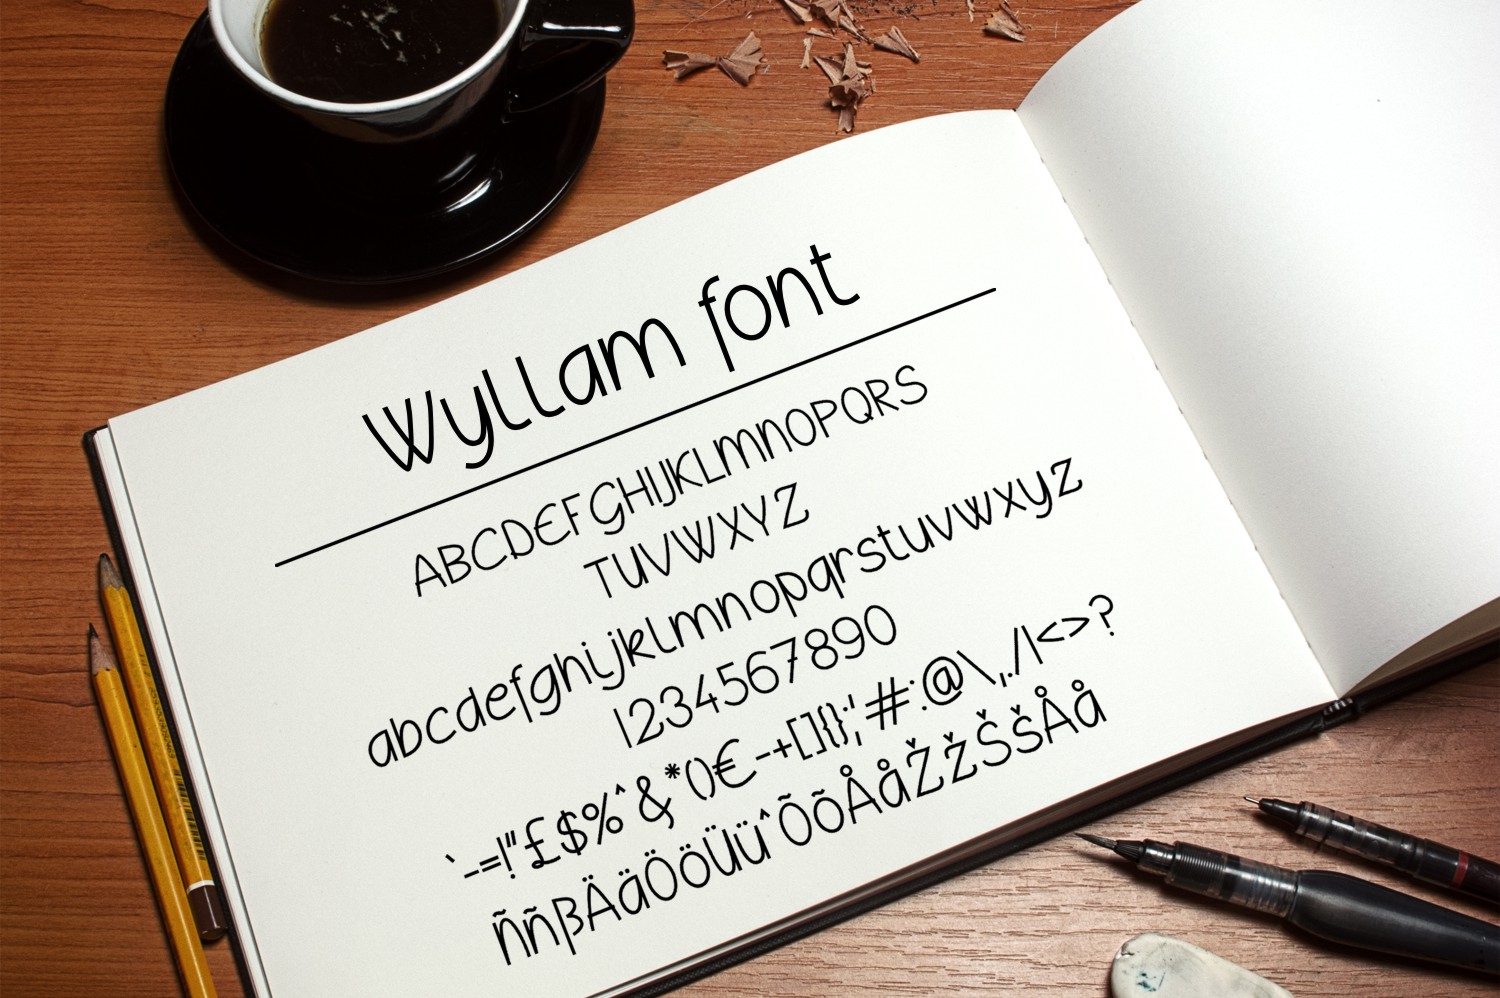 Wyllam font
ABCDEFGHIJKLMNOPQRS
TUVWXYZ
abcdefghijklmnopqrstuvwxyz
1234567890
`-=!"£$%^&*()€-+[]{};'#:@\,./|<>?
ÑñβÄäÖöÜü^ÕõÅåŽžŠšÅå